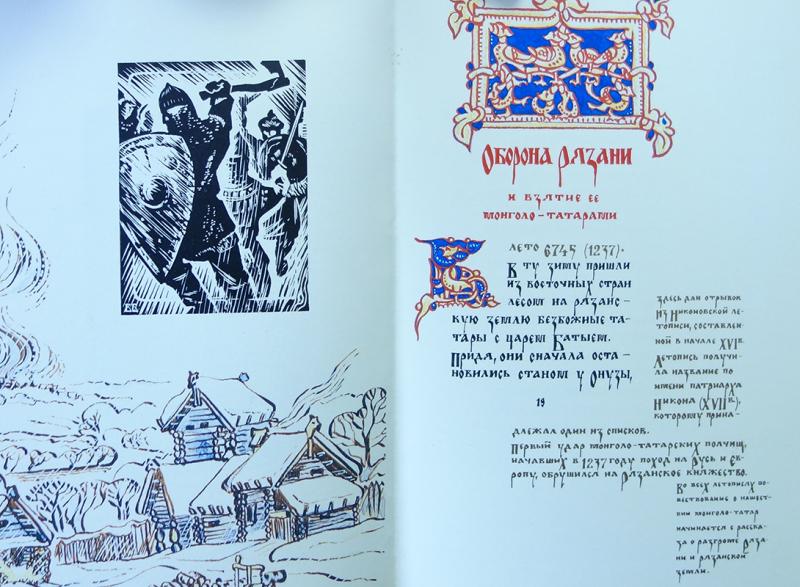 Оборона Рязани
и взятие ее
монголо-татарами
В лето 6745 (1237).
В ту зиму пришли
из восточных стран
лесом на рязанс-
кую землю безбожные та-
тары с царем Батыем.
Придя, они сначала оста-
новились станом у Онузы,
19
Здесь дан отрывок
из Никоновской ле-
тописи, составлен-
ной в начале XVIв.
Летопись получи-
ла название по
имени патриарха
Никона (XVIIв.),
которому прина-
длежал один из списков.
Первый удар монголо-татарских полчищ,
начавших в 1237 году поход на Русь и Ев-
ропу, обрушился на Рязанское княжество.
Во всех летописях по-
вествование о нашест-
вии монголо-татар
начинается с расска-
за о разгроме Ряза-
ни и рязанской
земли.
ВБ